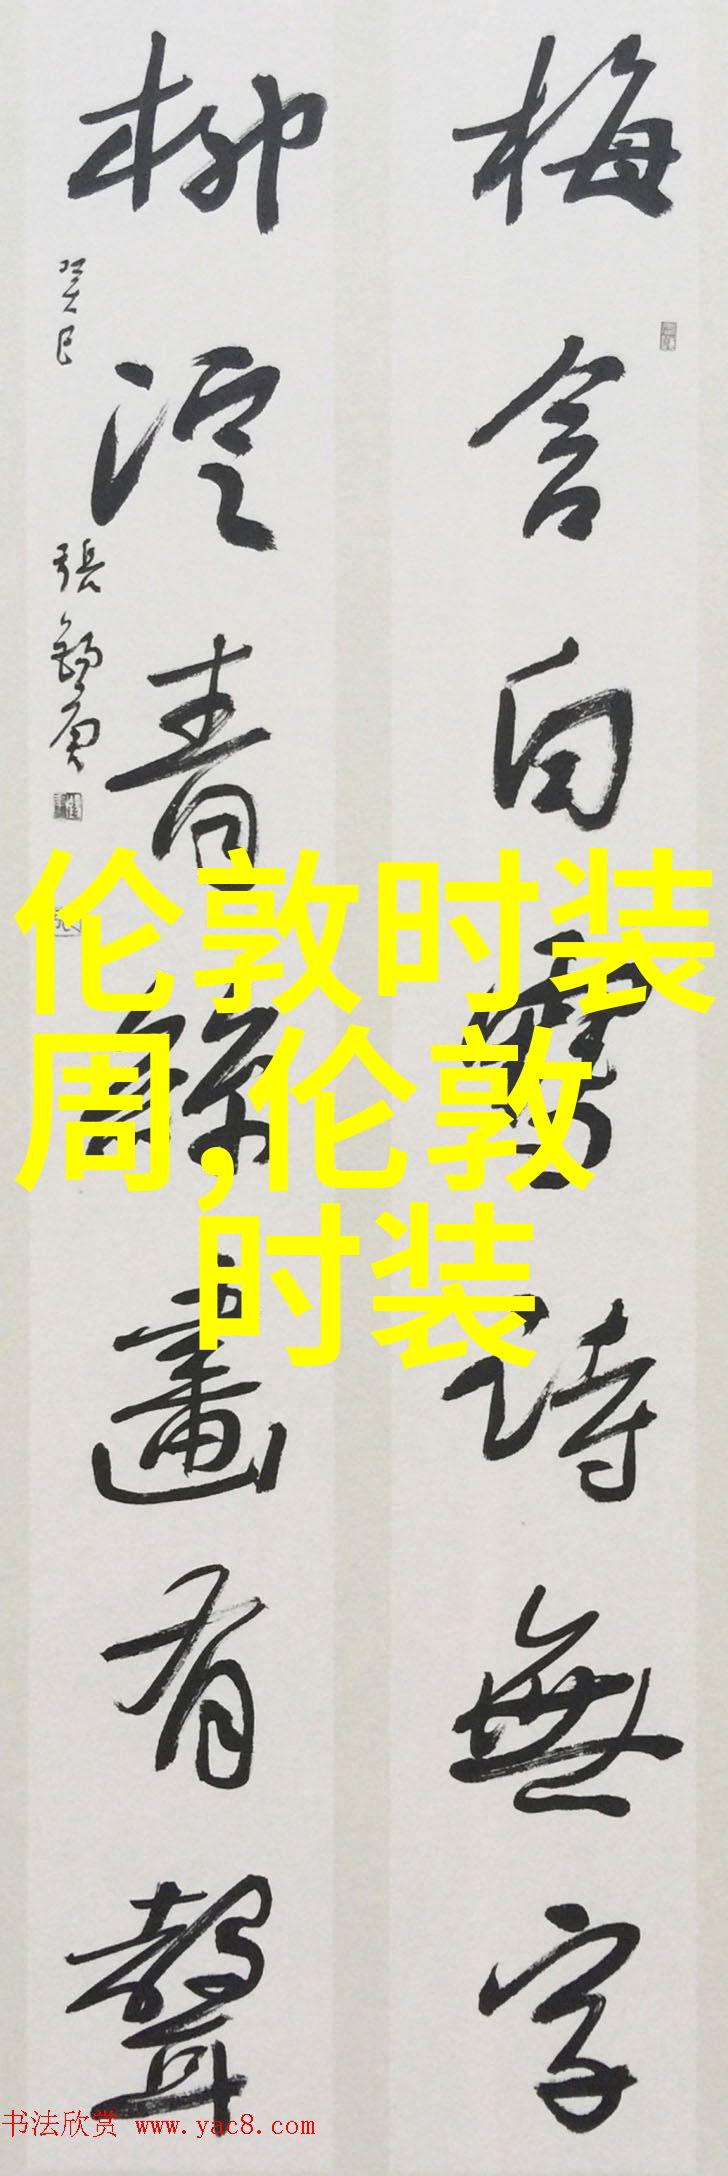 梅含白雪詩無字
柳青畫有聲
癸巳
張錫庚
伦敦时装
周,伦敦
时装
书法欣赏 www.yac8.com